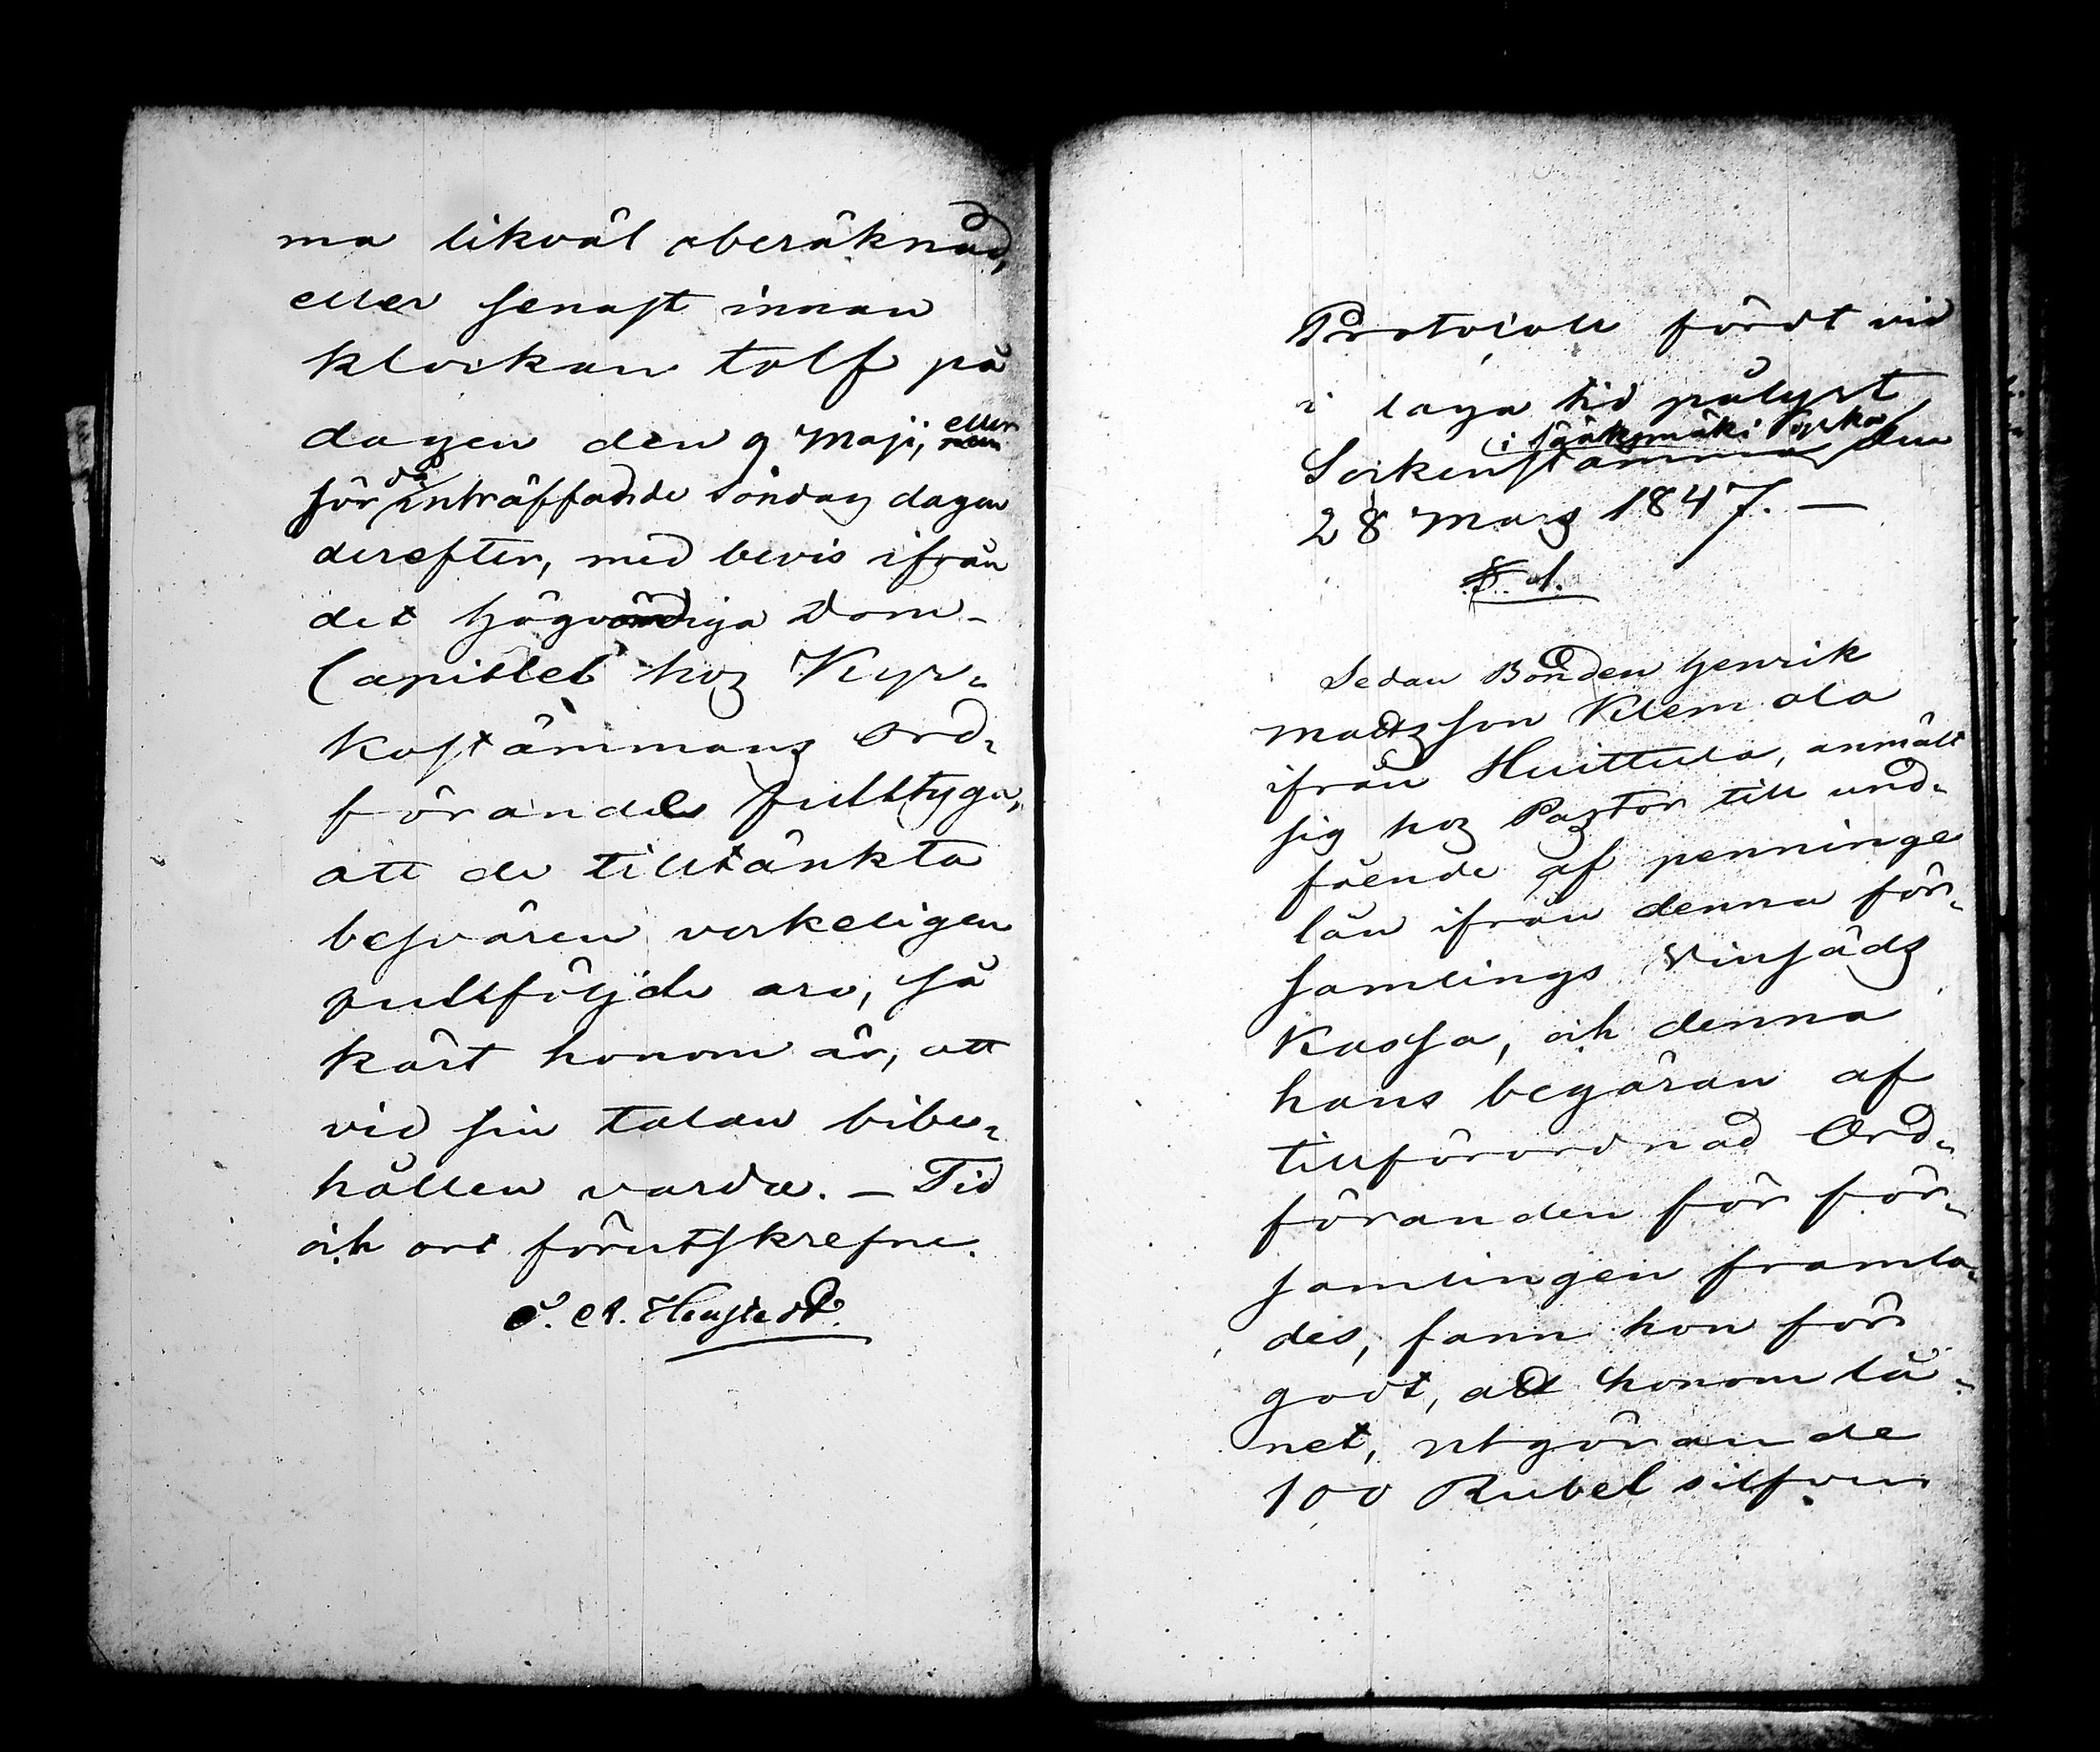 ma likväl oberäknad,
eller senast innan
klockan tolf på
dagen den 9 Maji, eller
för då inträffande Söndag dagen
derefter, med bevis ifrån
det Högvördiga Dom-
Capitlet hos Kyr-
kostämmans Ord-
förande fulltyga,
att de tilltänkta
besvären verkeligen
fullföljde äro, så
kärt honom är, att
vid sin talan bibe-
hållen varda. – Tid
och ort förutskrefne.
Protocoll fördt vid
i laga tid pålyst
i Sääksmäki kyrka
Sockenstämma den
28 Mars 1847. –
§ 1.
Sedan Bonden Henrik
Mattsson Klemola
ifrån Huittula, anmält
sig hos Pastor till und-
fående af penninge
lån ifrån denna för-
samlings Vinsäds
Kassa, och denna
hans begäran af
tillförordnad Ord-
föranden för för-
samlingen framla-
des, fann hon för
godt, att honom lå-
net, utgörande
100 Rubel silfver